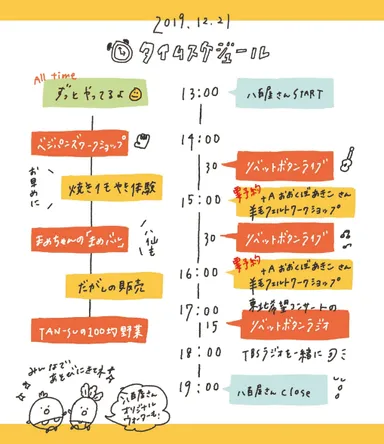 2019.12.21
タイムスケジュール
All time
ずっとやってるよ
ベジパンズワークショップ
お早めに
焼きイモやき体験
まめちゃんの「まめバル」
八仙も
だがしの販売
TAN-SUの100均野菜
みんなで、
あそびにきてネ
八百屋さん
オリジナル
ウォーターも!
13:00
八百屋さんSTART
14:00
30
リベットボタンライブ
15:00
要予約
+A おおくぼあきこ さん
羊毛フェルトワークショップ
30
リベットボタンライブ
16:00
要予約
+A おおくぼあきこ さん
羊毛フェルトワークショップ
17:00
東北希望コンサートの
15
リベットボタンラジオ
18:00
TBSラジオを一緒に
19:00
八百屋さんclose